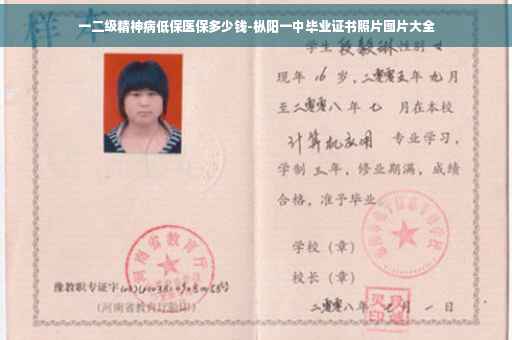 一二级精神病低保医保多少钱-枞阳一中毕业证书照片图片大全
样本
学生段毅琳性别女
现年16岁，二零零五年九月
至二零零八年七月在本校
计算机应用 专业学习，
学制三年，修业期满，成绩
合格，准予毕业。
学校（章）
校长（章）
二零零八年七月一日
河南省教育厅
豫教职专证字
（河南省教育厅验印）